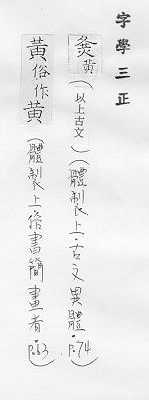 字學三正
黃（以上古文）（體製上·古文異體·P.74）
黃俗作黄（體製上·俗書簡畫者 P.63）